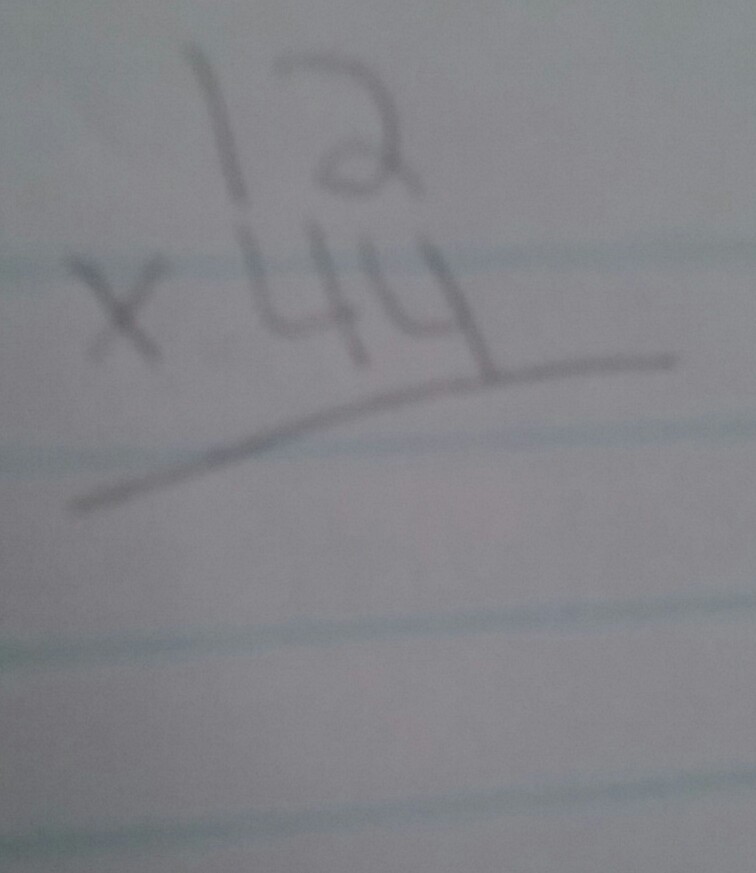 12
x 44